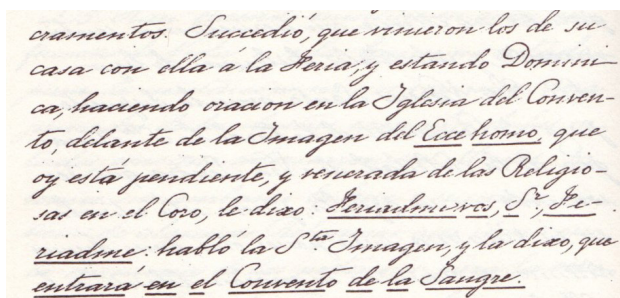 cramentos. Succedió, que vinieron los de su
casa con ella á la Feria, y estando Domini-
ca, haciendo oracion en la Iglesia del Conven-
to, delante de la Imagen del Ecce homo, que
oy está pendiente, y venerada de las Religio-
sas en el Coro, le dixo: Feriadme vos, S.r, Fe-
riadme: habló la S.ta Imagen, y la dixo, que
entrara en el Convento de la Sangre.